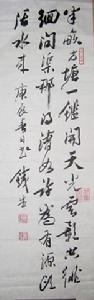 半畝方塘一鑑開天光雲影共徘
徊問渠那得清如許為有源頭
活水來 庚辰春日